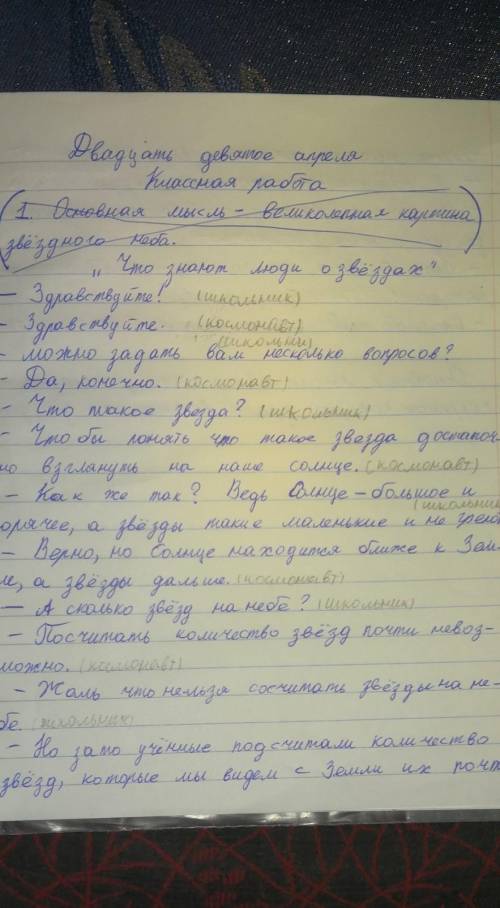 Двадцать девятое апреля
Классная работа
(1. Основная мысль - великолепная картина
звёздного неба.)
„Что знают люди о звёздах"
- Здравствуйте! (школьник)
- Здравствуйте. (космонавт)
(школьник)
- можно задать вам несколько вопросов?
- Да, конечно. (космонавт)
- Что такое звезда? (школьник)
- Что бы понять что такое звезда достаточ-
но взглянуть на наше солнце. (космонавт)
- Как же так? Ведь Солнце - большое и
(школьник
орячее, а звёзды такие маленькие и не греют
- Верно, но Солнце находится ближе к Зем-
ле, а звёзды дальше. (космонавт)
- А сколько звёзд на небе? (школьник)
- Посчитать количество звёзд почти невоз-
можно. (космонавт)
- Жаль что нельзя сосчитать звёзды на не-
бе. (школьник)
- Но зато учённые подсчитали количество
звёзд, которые мы видем с Земли их почт